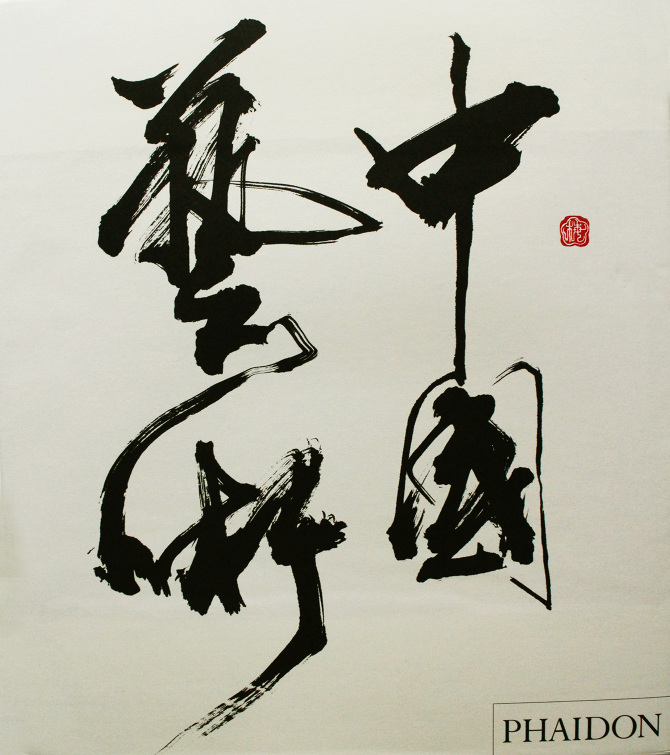 中國
藝術
PHAIDON